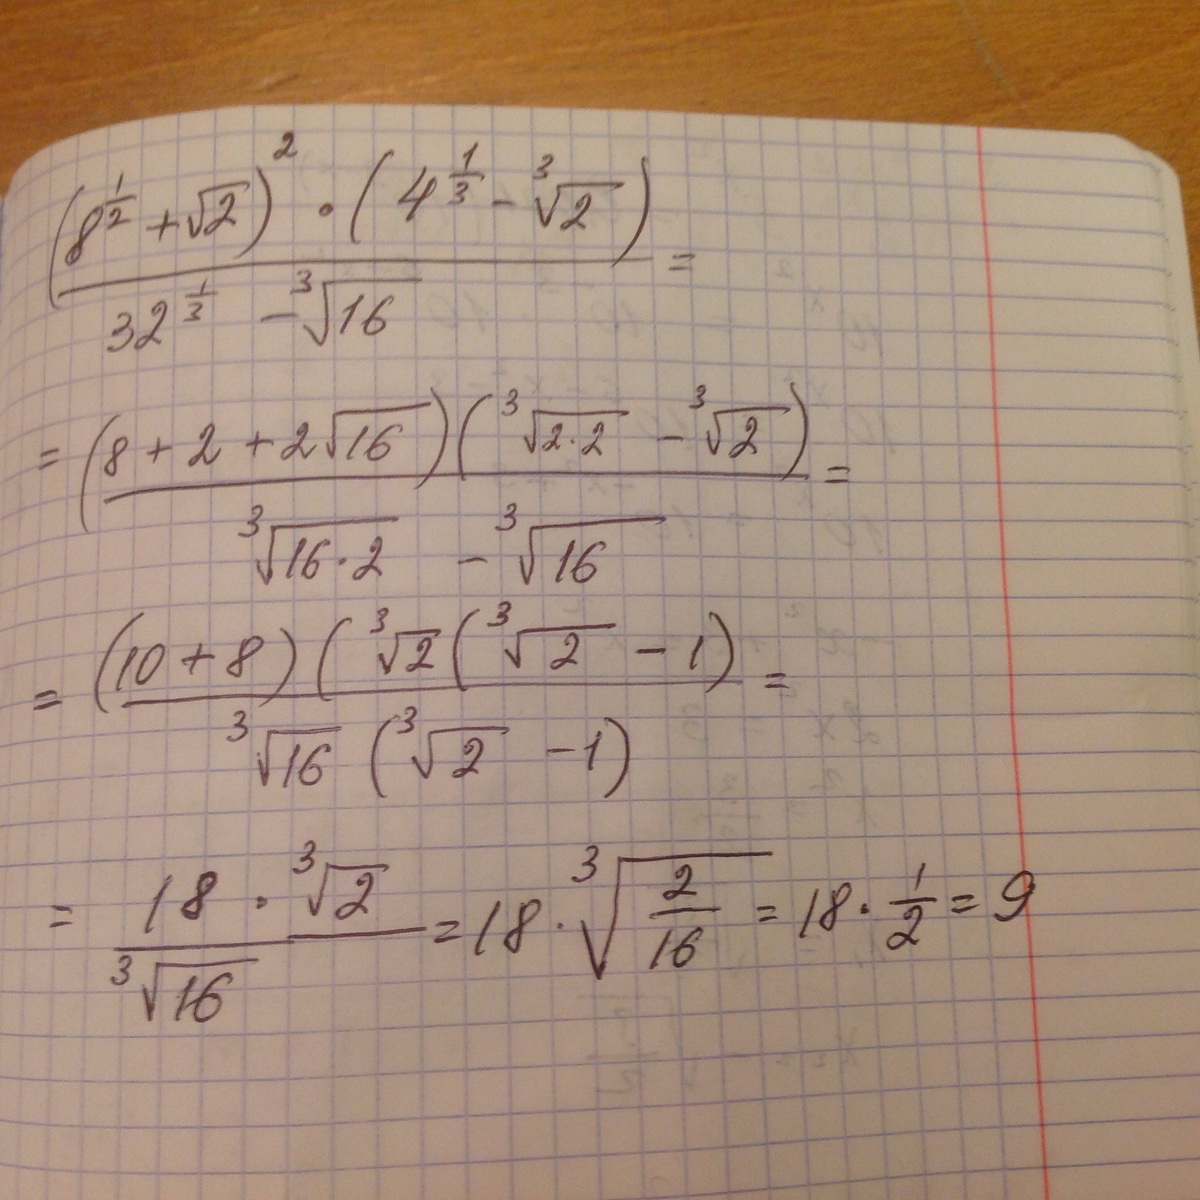 (8^{1/2} + √2)^2 · (4^{1/3} - ∛2) =
32^{1/3} - ∛16
= (8 + 2 + 2√16) (∛2·2 - ∛2) =
∛16·2 - ∛16
= (10 + 8) (∛2 (∛2 - 1) =
∛16 (∛2 - 1)
= 18 · ∛2 / ∛16 = 18 · ∛(2/16) = 18 · 1/2 = 9